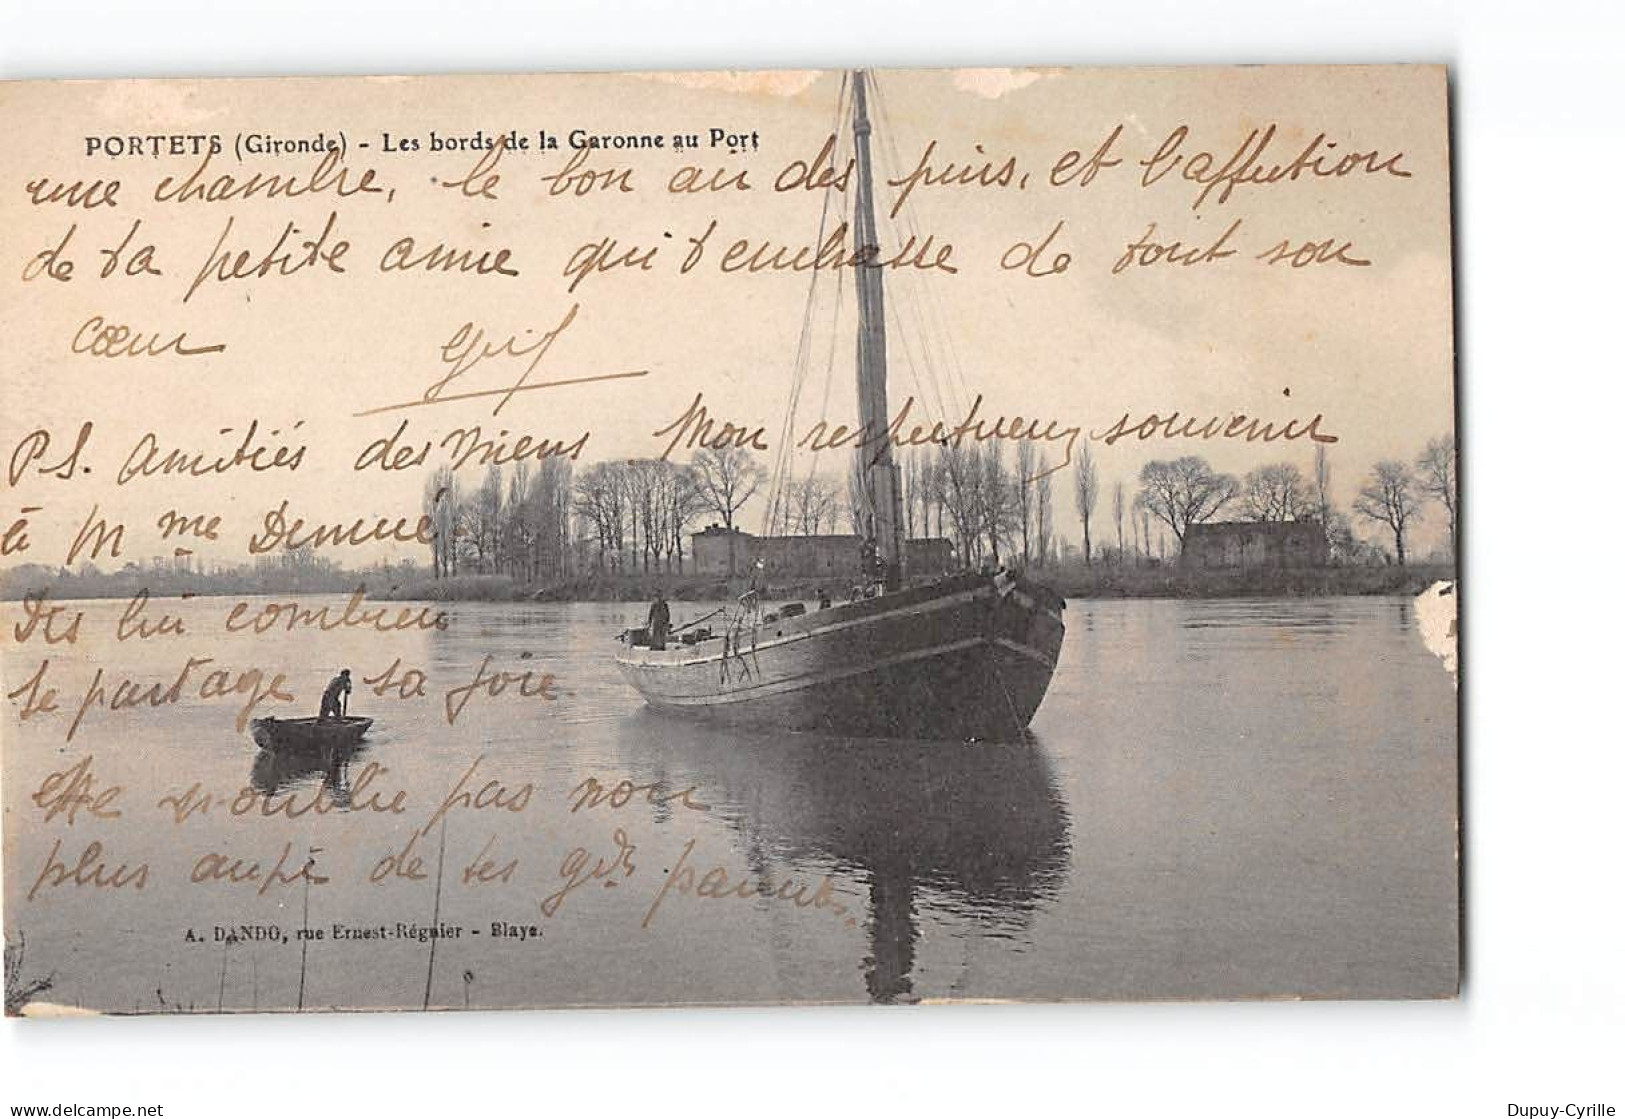 PORTETS (Gironde) - Les bords de la Garonne au Port
une chambre, le bon air des pins, et l'affection
de ta petite amie qui t'embrasse de tout son
cœur
PS. Amitiés des miens Mon respectueux souvenir
à Mme
Dis lui combien
je partage sa joie.
Ne m'oublie pas non
plus auprès de tes gds parents.
A. DANDO, rue Ernest-Régnier - Blaye.
delcampe.net
Dupuy-Cyrille